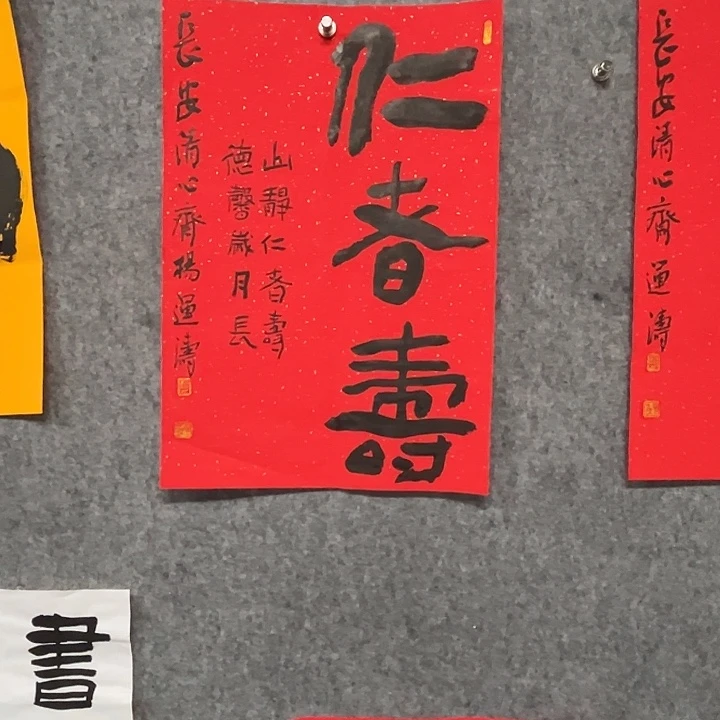 仁者壽
山靜仁者壽
德馨歲月長
長安清心齋楊運濤
長安清心齋運濤
書